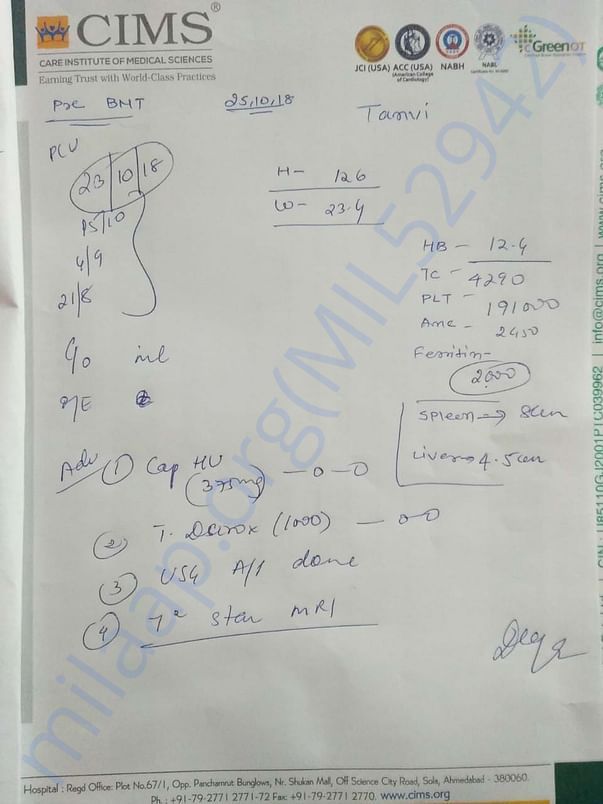 CIMS®
CARE INSTITUTE OF MEDICAL SCIENCES
Earning Trust with World-Class Practices
JCI (USA) ACC (USA) NABH NABL
(American College of Cardiology)
GreenOT
Pre BMT 25,10,18 Tanvi
PCV
23/10/18
15/10
4/9
21/8
H- 126
W- 23.4
HB - 12.4
TC - 4290
PLT - 191000
Anc - 2450
Ferritin-
2000
Spleen → 8cm
Liver → 4.5cm
C/o nil
O/E
Adv ① Cap HU
(375mg) —o—o
② T. Desirox (1000) — oo
③ USG A/P done
④ T2 star MRI
milaap.org(MIL52942)
Hospital : Regd Office: Plot No.67/1, Opp. Panchamrut Bunglows, Nr. Shukan Mall, Off Science City Road, Sola, Ahmedabad - 380060.
Ph. : +91-79-2771 2771-72 Fax: +91-79-2771 2770. www.cims.org
CIN : U85110GJ2001PTC039962 | info@cims.org | www.cims.org